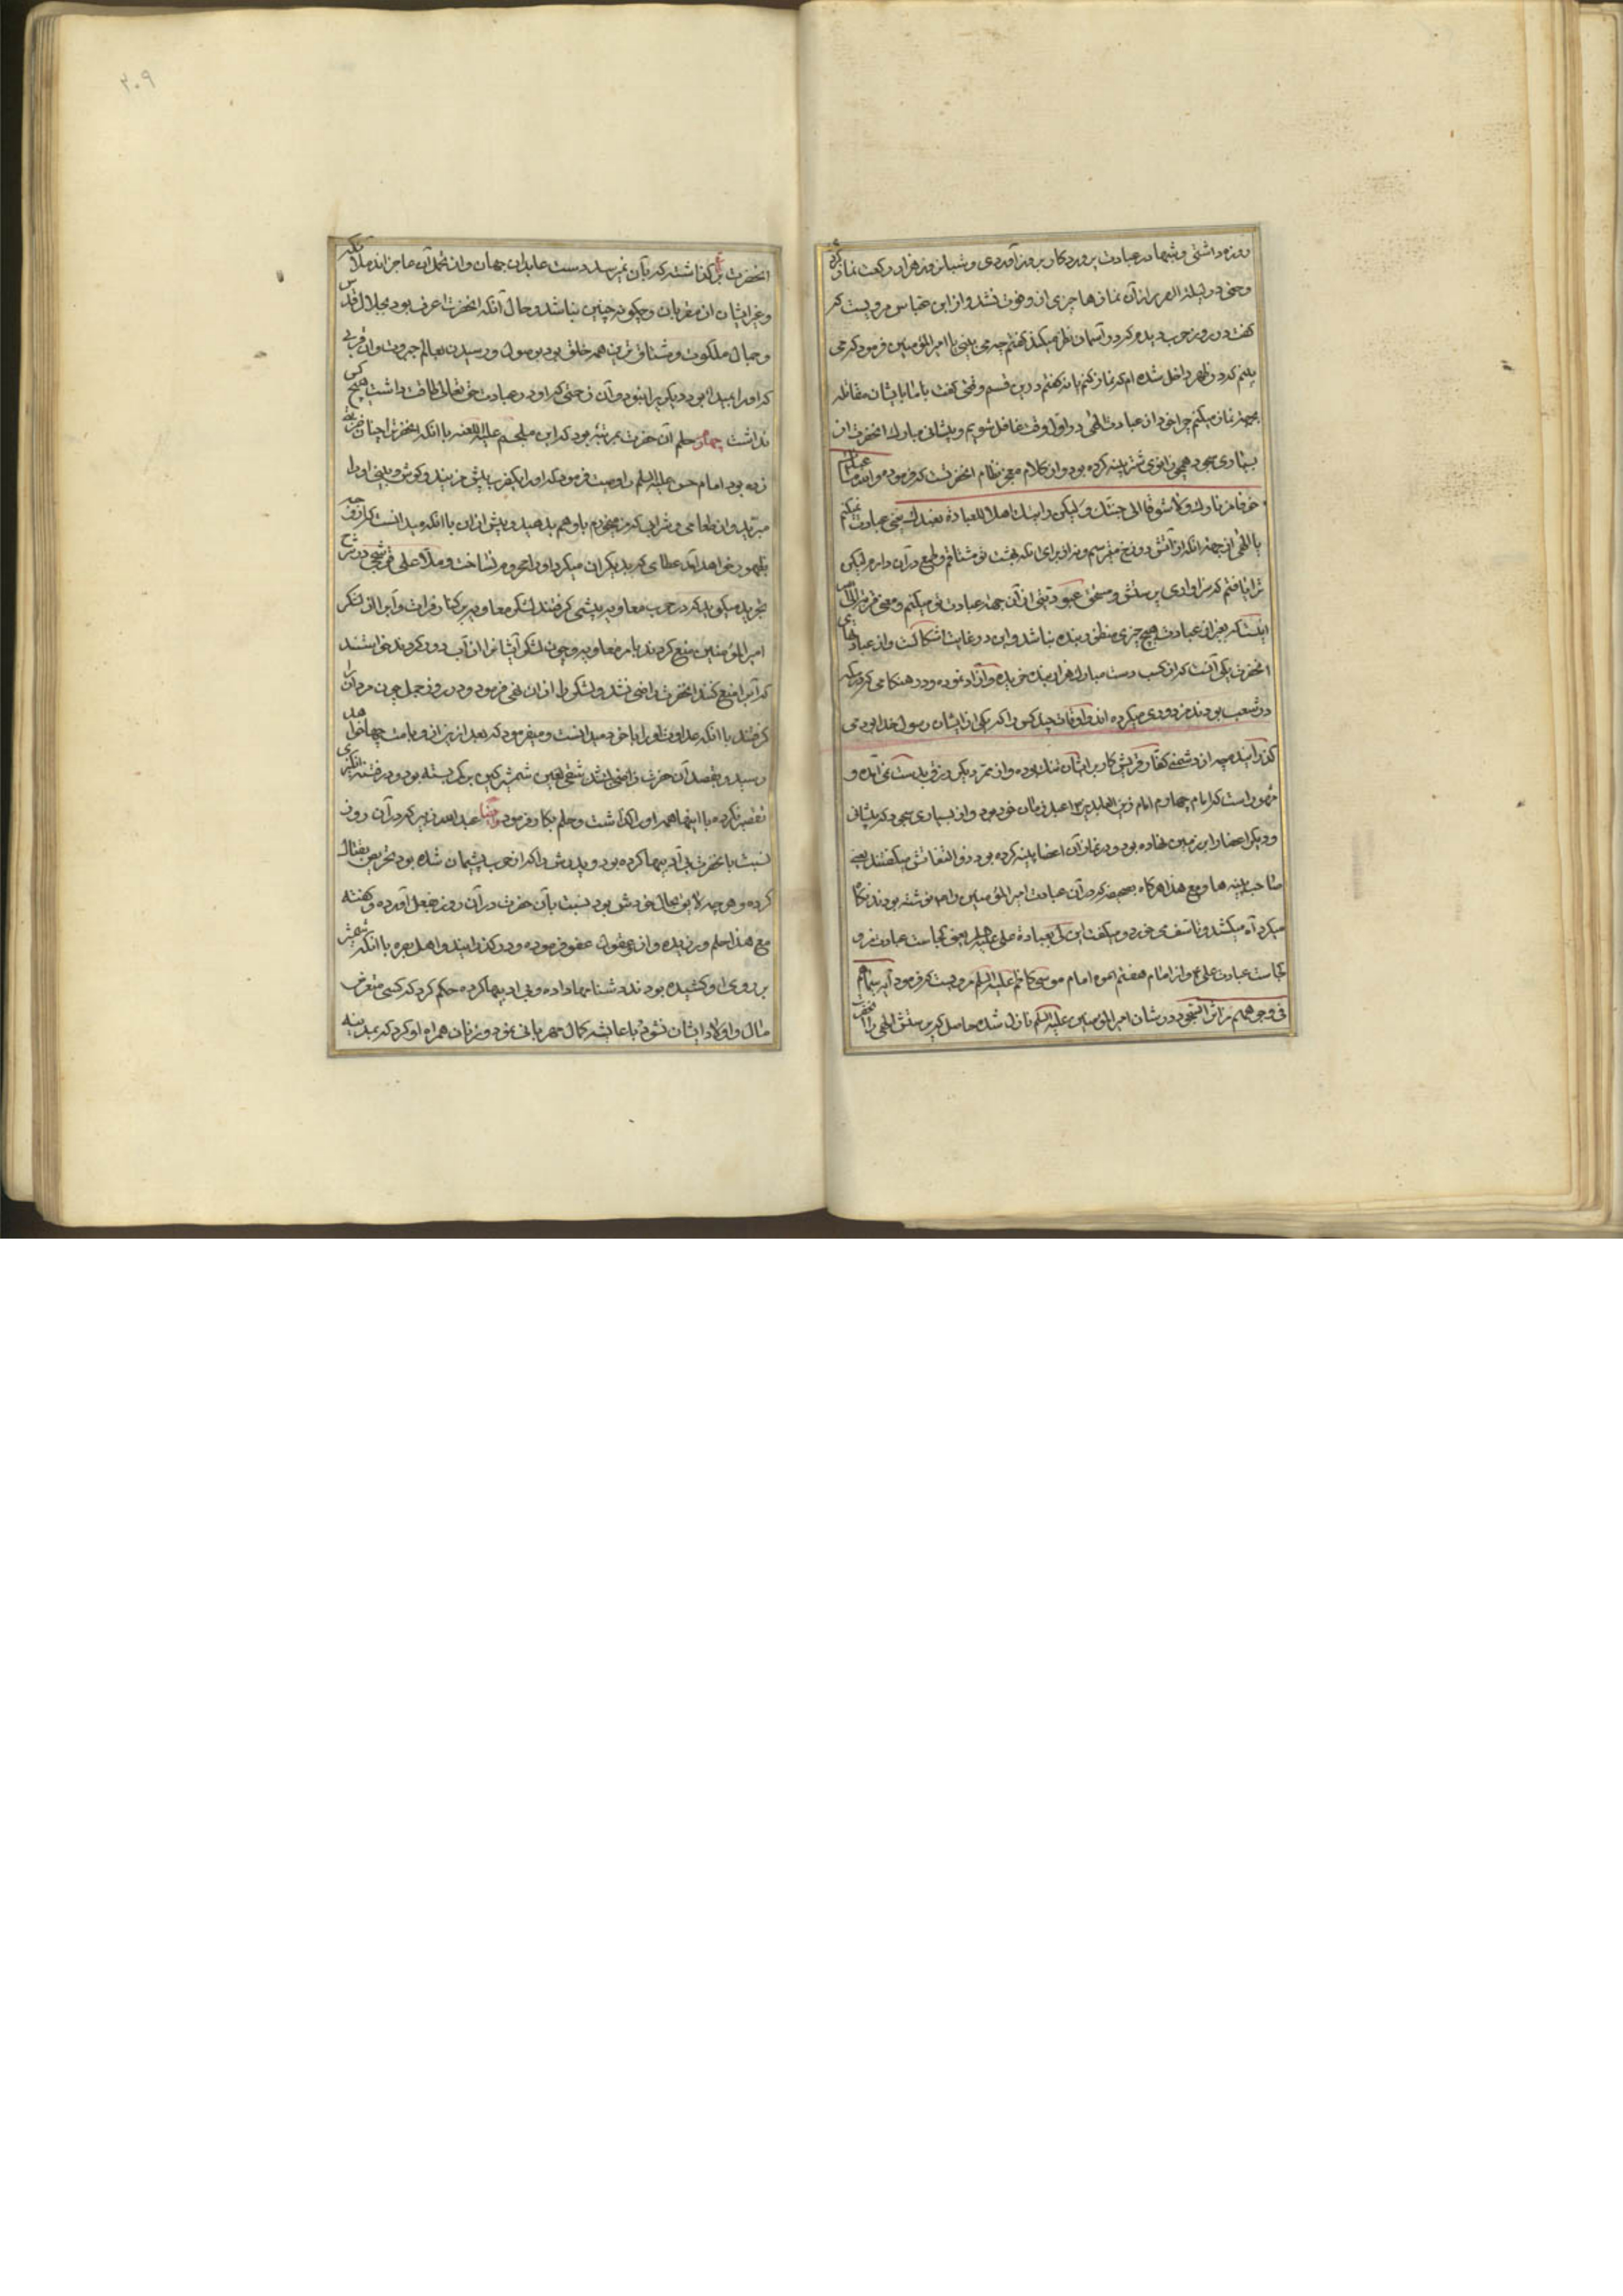 روزه داشتی و شبها در عبادت پروردگار بروز آوردی و شبانروز هزار رکعت نماز کرده
و حتی در لیلة الهریر از آن نمازها چیزی از او فوت نشد و از ابن عباس مرویست که
گفت در روز حرب دیدم که در آسمان نظر میکند گفتم چه می بینی یا امیر المؤمنین فرمود که می
بینم که در ظهر داخل شده ام که نماز کنم یا نه گفتم درین قسم وقتی گفت با ما با ایشان مقاتله
بجهة نماز میکنیم چرا خود از عبادت الهی در اول وقت غافل شویم و پیشانی مبارک انحضرت از
بسیاری سجود همچو زانوی شتر پینه کرده بود و از کلام معجز نظام انحضرتست که فرموده
خوفا من نارك ولا شوقا الی جنتك ولیکن رایتك اهلا للعبادة فعبدتك یعنی عبادت نمیکنم
یا الهی از جهة انکه از آتش دوزخ میترسم و نه از برای انکه بهشت تو مشتاقم و طمع در آن دارم لیکن
ترا یافتم که سزاواری پرستش و مستحق عبودیتی از آن جهة عبادت تو میکنم و معنی
اینست که بغیر از عبادت هیچ چیزی منظور بنده نباشد و این در غایت اشکالست و از عبادتهای
انحضرت یکی آنست که از کسب دست مبارک هزار بنده خریده و آزاد نموده و در هنگامی که
در شعب بودند مزدوری میکرده اند و اوقات چهل کس را که یکی از ایشان رسول خدا بود می
گذرانیده چه از دشمنی کفار قریش کار بر ایشان تنگ بوده و از ممر دیگر در قوت بدست نمی آمده و
مشهور است که امام چهارم امام زین العابدین اعبد زمان خود بود و از بسیاری سجود که پیشانی
و دیگر اعضا را بر زمین نهاده بود و در نماز آن اعضا پینه کرده بود ذو الثفناتش میگفتند یعنی
صاحب پینه ها و مع هذا هرگاه بصحیفه که در آن عبادت امیر المؤمنین را نوشته بودند نگاه
میکرد آه میکشید و تاسف می خورد و میگفت این لی بعبادة علی علیه السلم یعنی کجاست عبادت من و
کجاست عبادت علی و از امام هفتم امام موسی کاظم علیه السلم مرویست که فرمود آیه سیماهم
فی وجوههم من اثر السجود در شان امیر المؤمنین علیه السلم نازل شده حاصل که پرستش الهی را
انحضرت بر گذاشته که بآن نمیرسد دست عابدان جهان و از تحمل آن عاجزاند ملائکه
و غیر ایشان از مقربان و چگونه چنین نباشد و حال آنکه انحضرت اعرف بود بجلال قدس
و جمال ملکوت و مشتاق ترین همه خلق بود بوصول و رسیدن بعالم جبروت و آن قربی
که او را میسر بود دیگری را نبود و آن زحمتی که او در عبادت حق تعالی طاقت داشت هیچ کس
نداشت چهارم حلم آن حضرت بمرتبه بود که ابن ملجم علیه اللعنه با انکه انحضرت را چنان ضربتی
زده بود امام حسن علیه السلم را وصیت فرمود که او را یکضرب بیش مزنید و گوش و بینی او را
مبرید و از طعامی و شرابی که من میخورم باو هم بدهید و پیش از آن با انکه میدانست که از او چه
بظهور خواهد آمد عطای که بدیگران میکرد او را محروم نساخت و ملا علی قوشچی در شرح
تجرید میگوید که در حرب معاویه پیشی گرفتند لشکر معاویه بر کنار فرات و آب را از لشکر
امیر المؤمنین منع کردند بامر معاویه و چون لشکر آنشان را از آب دور کردند خواستند
که آب را منع کنند انحضرت راضی نشد و لشکر را از آن نهی فرمود و در روز جمل چون مروان را
گرفتند با انکه عداوت او را با خود میدانست و میفرمود که بعد از من از او بامت چها خواهد
رسید و بقصد آن حضرت شمشیر کین بر کمر بسته بود و در فتنه انگیزی
تقصیر نکرده با اینها همه او را گذاشت و حلم بکار فرمود و عبد الله زبیر که در آن روز
نسبت بانحضرت بی ادبیها کرده بود و پدرش را که از حرب پشیمان شده بود تحریص بقتال
کرده و هر چه لایق بحال خودش بود نسبت بآن حضرت در آن روز بفعل آورده و گفته
مع هذا حلم ورزیده و از عفو فرموده و در گذرانید و اهل بصره با انکه شمشیر
بر روی او کشیده بودند دشنامها داده و بی ادبیها کرده حکم کرد که کسی متعرض
مال و اولاد ایشان نشود با عایشه کمال مهربانی نمود و زنان همراه او کرد که بمدینه
۲۰۹